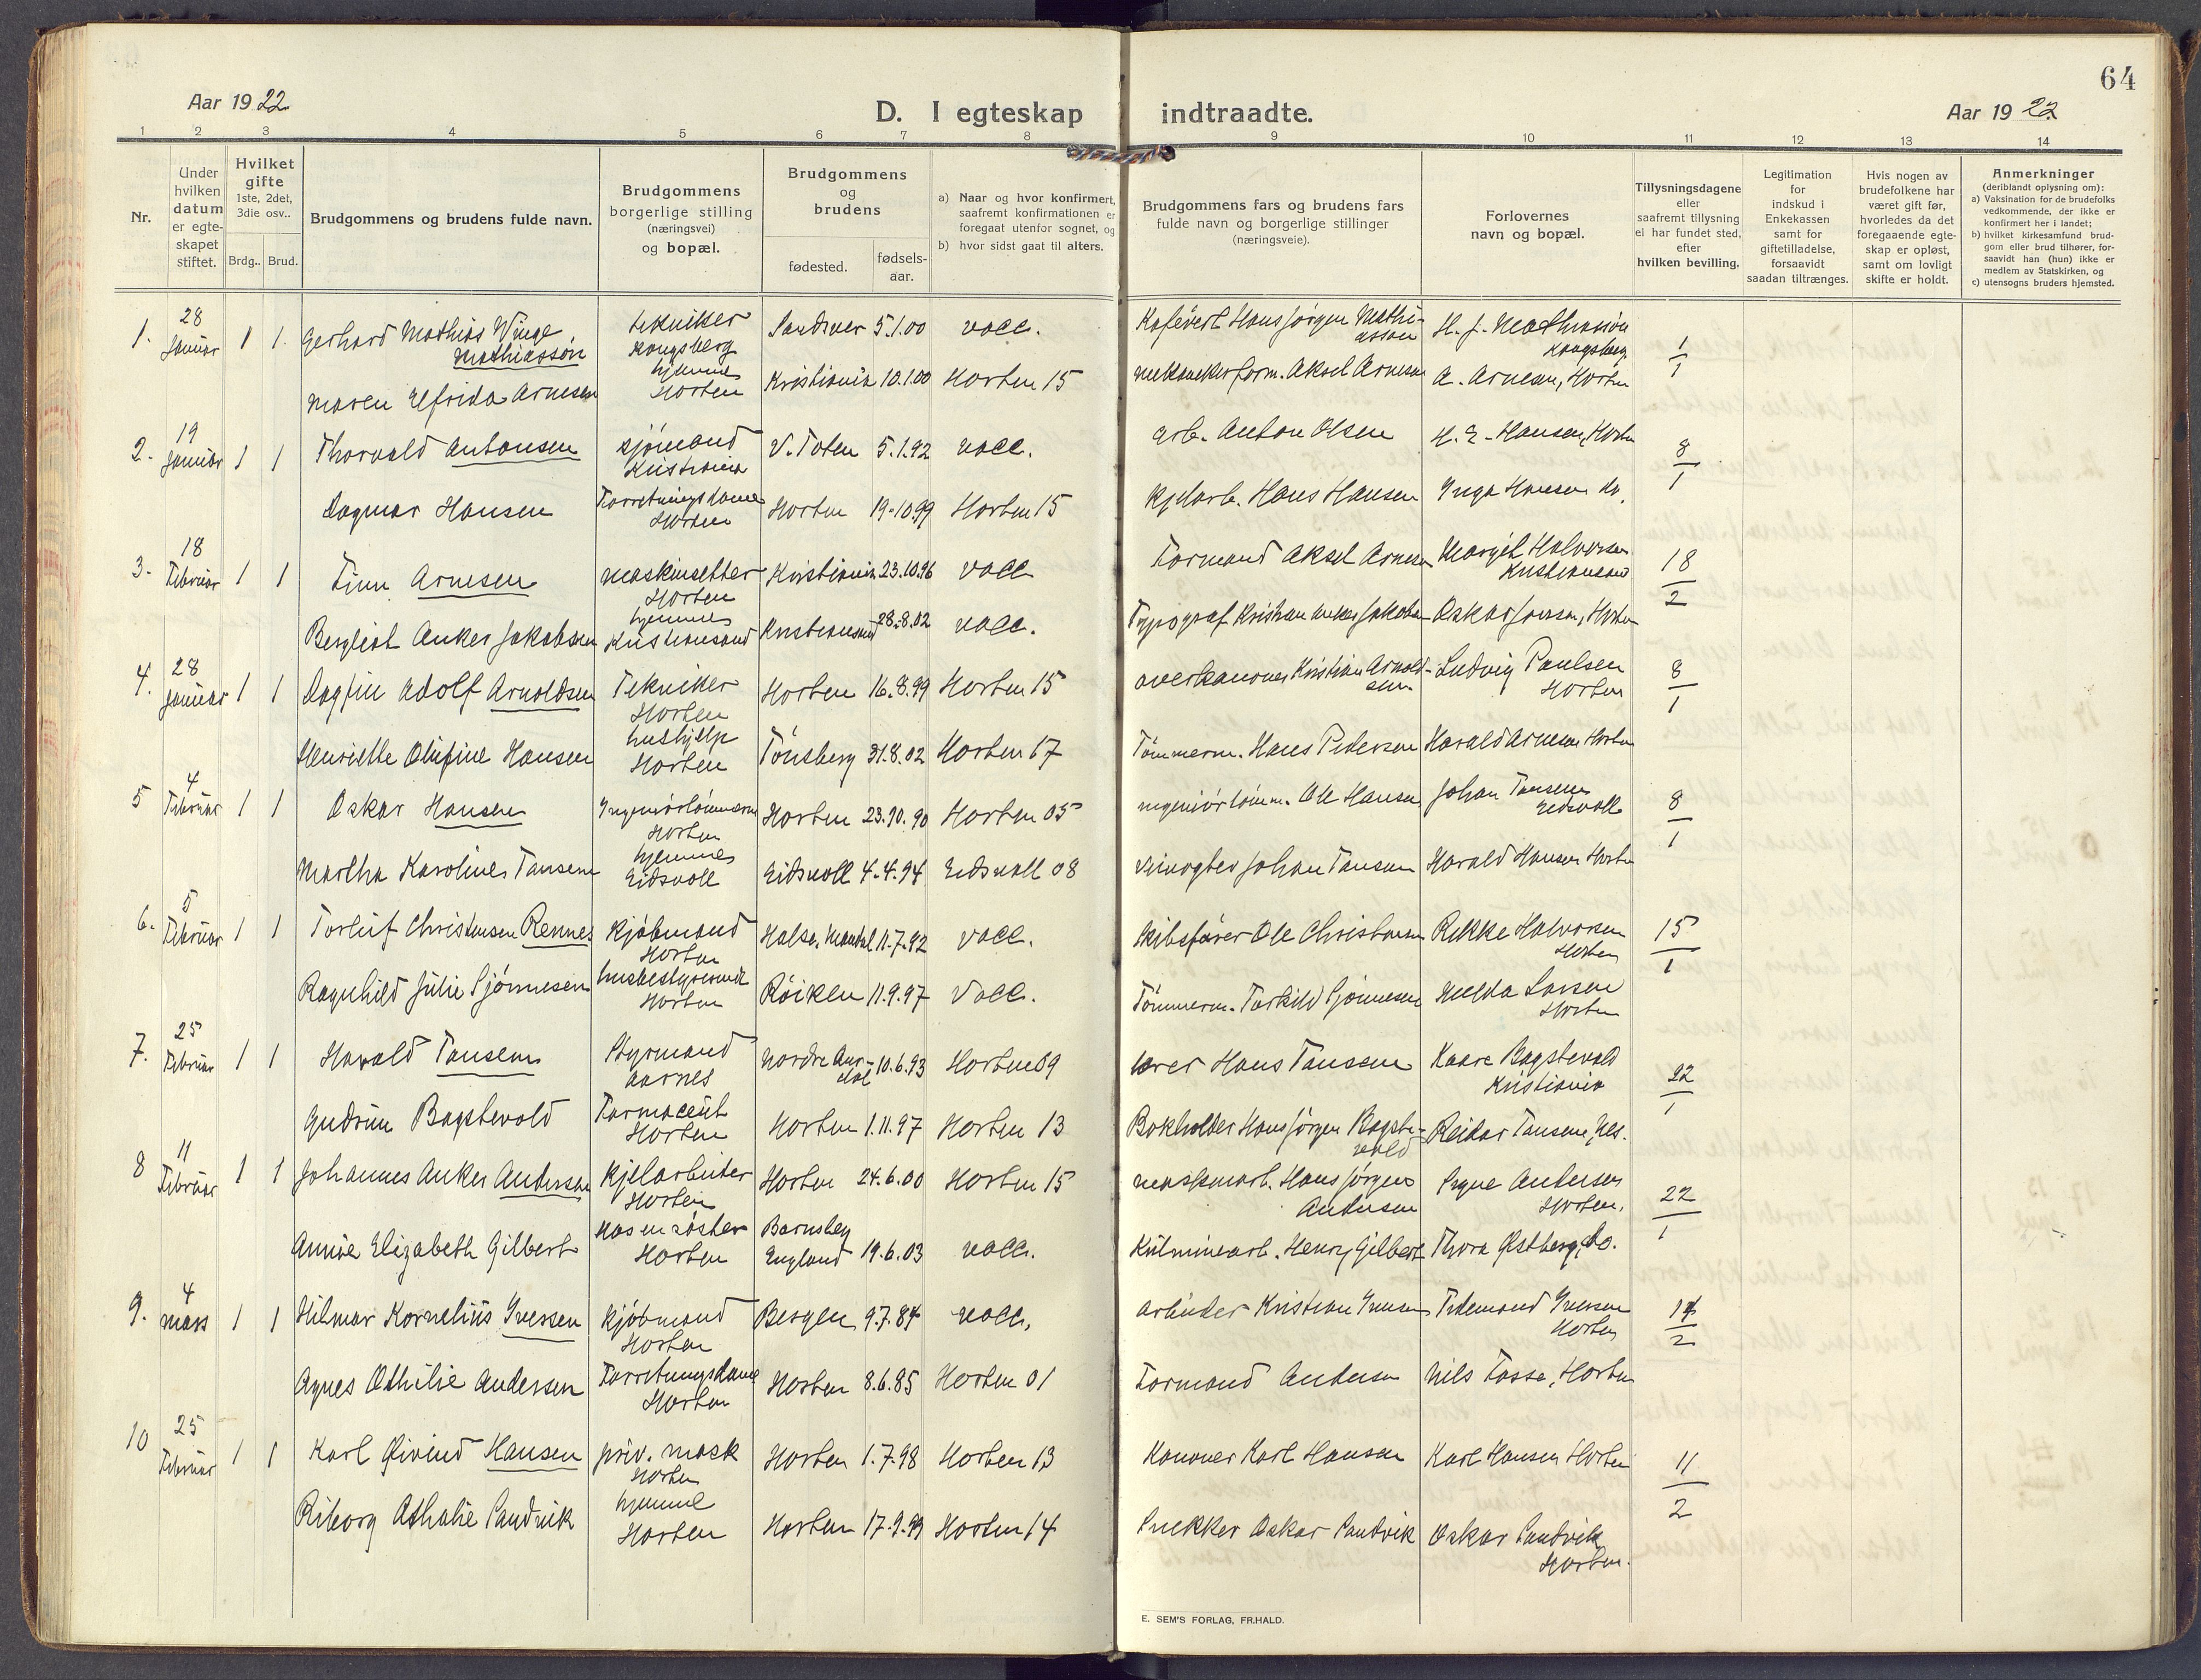 64
Aar 1922
D. I egteskap indtraadte.
Aar 1922
1 2 3 4 5 6 7 8 9 10 11 12 13 14
Nr.
Under hvilken datum er egteskapet stiftet.
Hvilket gifte 1ste, 2det, 3die osv..
Brdg.. Brud.
Brudgommens og brudens fulde navn.
Brudgommens borgerlige stilling (næringsvei) og bopæl.
Brudgommens og brudens
fødested. fødselsaar.
a) Naar og hvor konfirmert, saafremt konfirmationen er foregaat utenfor sognet, og
b) hvor sidst gaat til alters.
Brudgommens fars og brudens fars fulde navn og borgerlige stillinger (næringsveie).
Forlovernes navn og bopæl.
Tillysningsdagene eller saafremt tillysning ei har fundet sted, efter hvilken bevilling.
Legitimation for indskud i Enkekassen samt for giftetilladelse, forsaavidt saadan tiltrænges.
Hvis nogen av brudefolkene har været gift før, hvorledes da det foregaaende egteskap er opløst, samt om lovligt skifte er holdt.
Anmerkninger (deriblandt oplysning om):
a) Vaksination for de brudefolks vedkommende, der ikke er konfirmert her i landet;
b) hvilket kirkesamfund brudgom eller brud tilhører, forsaavidt han (hun) ikke er medlem av Statskirken, og
c) utensogns bruders hjemsted.
1. 28 Januar 1 1. Gerhard Mathias Winge Mathiassón tekniker Kongsberg Sandsver 5.1.00 vacc. Kafévert Hans Jörgen Mathiasson H. J. Mathiassön Kongsberg 1/1
Maren Elfrida Arnesen hjemme Horten Kristiania 10.1.00 Horten 15 mekanikerform. Aksel Arnesen A. Arnesen, Horten
2. 19 Januar 1 1 Thorvald Antonsen sjömand Kristiania V. Toten 5.1.92 vacc. arb. Anton Olsen H. E. Hansen, Horten 8/1
Dagmar Hansen Forretningsdame Horten Horten 19.10.99 Horten 15 Kjelarb. Hans Hansen Inga Hansen do.
3. 18 Februar 1 1 Finn Arnesen maskinsetter Horten Kristiania 23.10.96 vacc. Formand Aksel Arnesen Margit Halvorsen Kristiansand 18/2
Bergliot Anker Jakobsen hjemme Kristiansand Kristiansand 28.8.02 vacc. Typograf Kristian Anker Jakobsen Oskar Iversen, Horten
4. 28 Januar 1 1 Dagfin Adolf Arnoldsen Tekniker Horten Horten 16.8.99 Horten 15 overkanoner Kristian Arnoldsen Ludvig Paulsen Horten 8/1
Henriette Olufine Hansen hushjelp Horten Tönsberg 31.8.02 Horten 17 Tömmerm. Hans Pedersen Harald Arnesen Horten
5 4 Februar 1 1 Oskar Hansen Ingeniörtömmerm Horten Horten 23.10.90 Horten 05 ingeniörtömm. Ole Hansen Johan Tansem Eidsvoll 8/1
Martha Karoline Tansem hjemme Eidsvoll Eidsvoll 4.4.94 Eidsvoll 08 veivogter Johan Tansem Harald Hansen Horten
6. 5 Februar 1 1 Torleif Christensen Rennes kjöbmand Horten Halse, Mandal 11.7.92 vacc. Skibsförer Ole Christensen Rikke Halvorsen Horten 15/1
Ragnhild Julie Sjönnesen husbestyrerinde Horten Röiken 11.9.97 Vacc. Tömmerm. Torkild Sjönnesen Hulda Larsen Horten
7. 25 Februar 1 1 Harald Tansem Styrmand Aarnes Nordre Aurdal 10.6.93 Horten 09 lærer Hans Tansem Kaare Bagstevold Kristiania 22/1
Gudrun Bagstevold Farmaceut Horten Horten 1.11.97 Horten 13 Bokholder Hans Jörgen Bagstevold Reidar Tansem, Nes.
8 11 Februar 1 1 Johannes Anker Andersen kjelarbeider Horten Horten 24.6.00 Horten 15 maskinarb. Hans Jörgen Andersen Signe Andersen Horten. 22/1
Annie Elizabeth Gilbert Horten Barnsley England 19.6.03 vacc. Kulminearb. Henry Gilbert Thora Østberg, do.
9. 4 mars 1 1 Hilmar Kornelius Iversen kjöbmand Horten Bergen 9.7.84 vacc. arbeider Kristian Iversen Tidemand Iversen Horten 14/2
Agnes Othilie Andersen Forretningsdame Horten Horten 8.6.85 Horten 01 Formand Andersen Nils Fosse, Horten
10 25 Februar 1 1 Karl Øivind Hansen priv. mask Horten Horten 1.7.98 Horten 13 Kanoner Karl Hansen Karl Hansen Horten 11/2
Riborg Athalie Sandvik hjemme Horten Horten 17.9.99 Horten 14 Snekker Oskar Sandvik Oskar Sandvik Horten.
E. SEM'S FORLAG, FR.HALD.